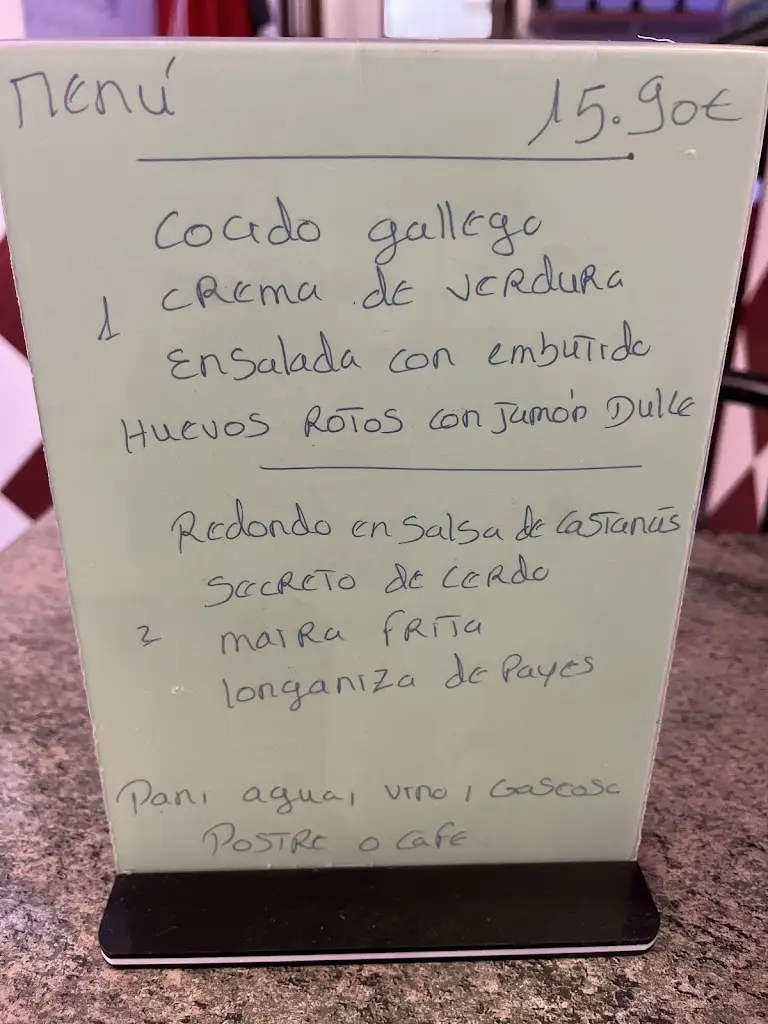 Menú 15.90€
Cocido gallego
1 Crema de verdura
Ensalada con embutido
Huevos rotos con Jamón Dulce
Redondo en salsa de castañas
Secreto de cerdo
2 maira frita
longaniza de Payes
Pan, agua, vino, Gaseosa
Postre o cafe